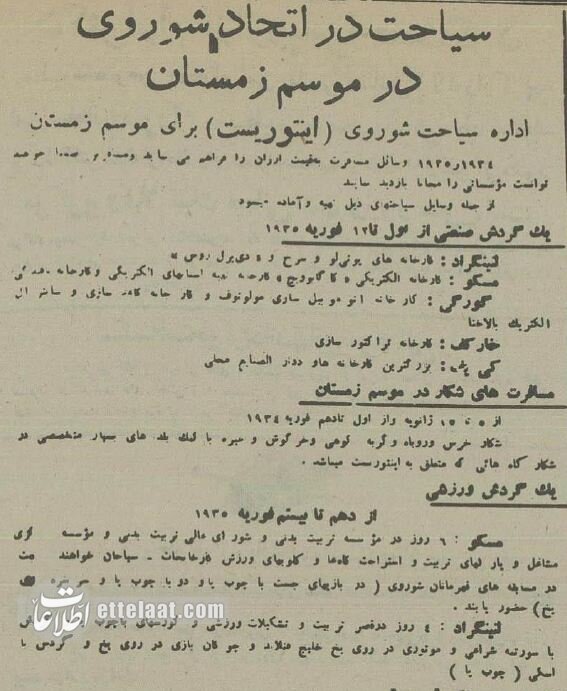 سیاحت در اتحاد شوروی
در موسم زمستان
اداره سیاحت شوروی ( اینتوریست ) برای موسم زمستان
۱۹۳۴ر۱۹۳۵ وسائل مسافرت بقیمت ارزان را فراهم می نماید
توانست مؤسساتی را مجانا بازدید نمایند
از جمله وسایل سیاحتهای ذیل تهیه و آماده میشود
یك گردش صنعتی از اول تا ۱۲ فوریه ۱۹۳۵
لنینگراد : کارخانه های پوتی‌لو و سرخ و
مسکو : کارخانه الکتریکی « کاگانویچ » کارخانه اسبابهای الکتریکی و کارخانه
گورگی : کارخانه اتوموبیل سازی مولوتوف و کارخانه کاغذ سازی و سانترال
الکتریك بالاخنا
خارکف : کارخانه تراکتور سازی
کی یف : بزرگترین کارخانه ها و دوائر الصنایع محلی
مسافرت های شکار در موسم زمستان
از ۵ تا ۱۵ ژانویه و از اول تا دهم فوریه ۱۹۳۴
شکار خرس و روباه و گربه کوهی و خرگوش و غیره با کمك بلد های بسیار متخصصی در
شکار گاه هائی که متعلق به اینتوریست میباشد .
یك گردش ورزشی
از دهم تا بیستم فوریه ۱۹۳۵
مسکو : ۶ روز در مؤسسه تربیت بدنی و شورای عالی تربیت بدنی و مؤسسه
مشاغل و پارکهای تربیت و استراحت گاهها و کلوبهای ورزش کارخانجات - سیاحان خواهند
در مسابقه های قهرمانان شوروی ( در بازیهای جست با چوب پا و دو با چوب پا و سر
یخ ) حضور یابند .
لنینگراد : ۴ روز در قصر تربیت و تشکیلات ورزشی و کورسهای
با سورتمه شراعی و موتوری در روی یخ خلیج فنلاند و چوگان بازی در روی یخ و گردش با
اسکی ( چوب پا )
اطلاعات ettelaat.com